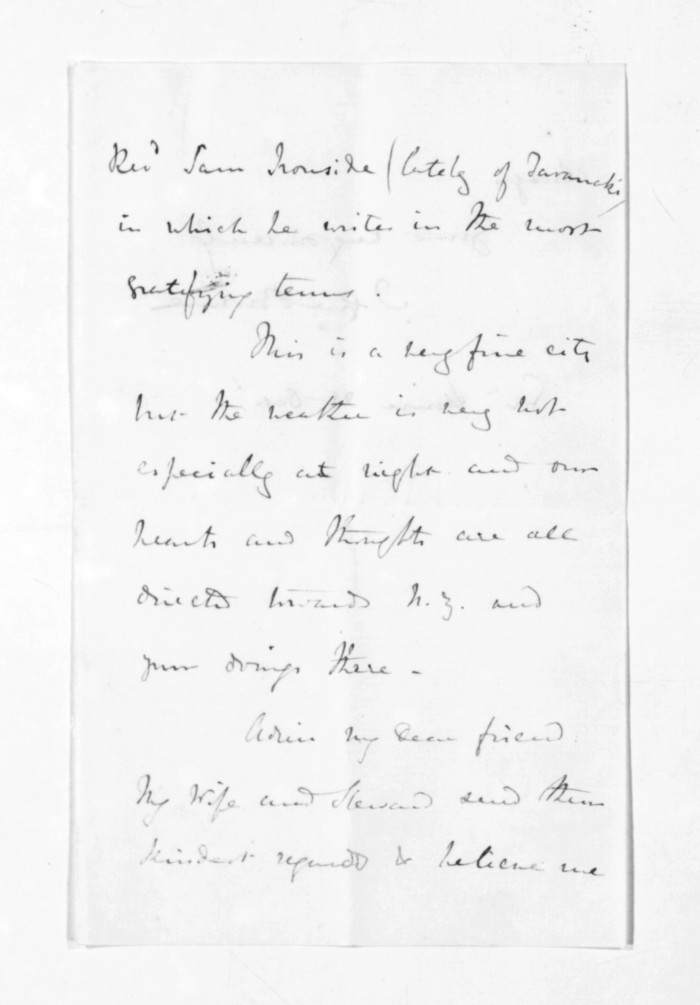 Revd Sam Ironside (lately of Taranaki)
in which he writes in the most
gratifying terms.
This is a very fine city
but the weather is very hot
especially at night and our
hearts and thoughts are all
directed towards N.Z. and
your doings there -
Adieu my dear friend
My Wife and Steward send their
kindest regards & believe me